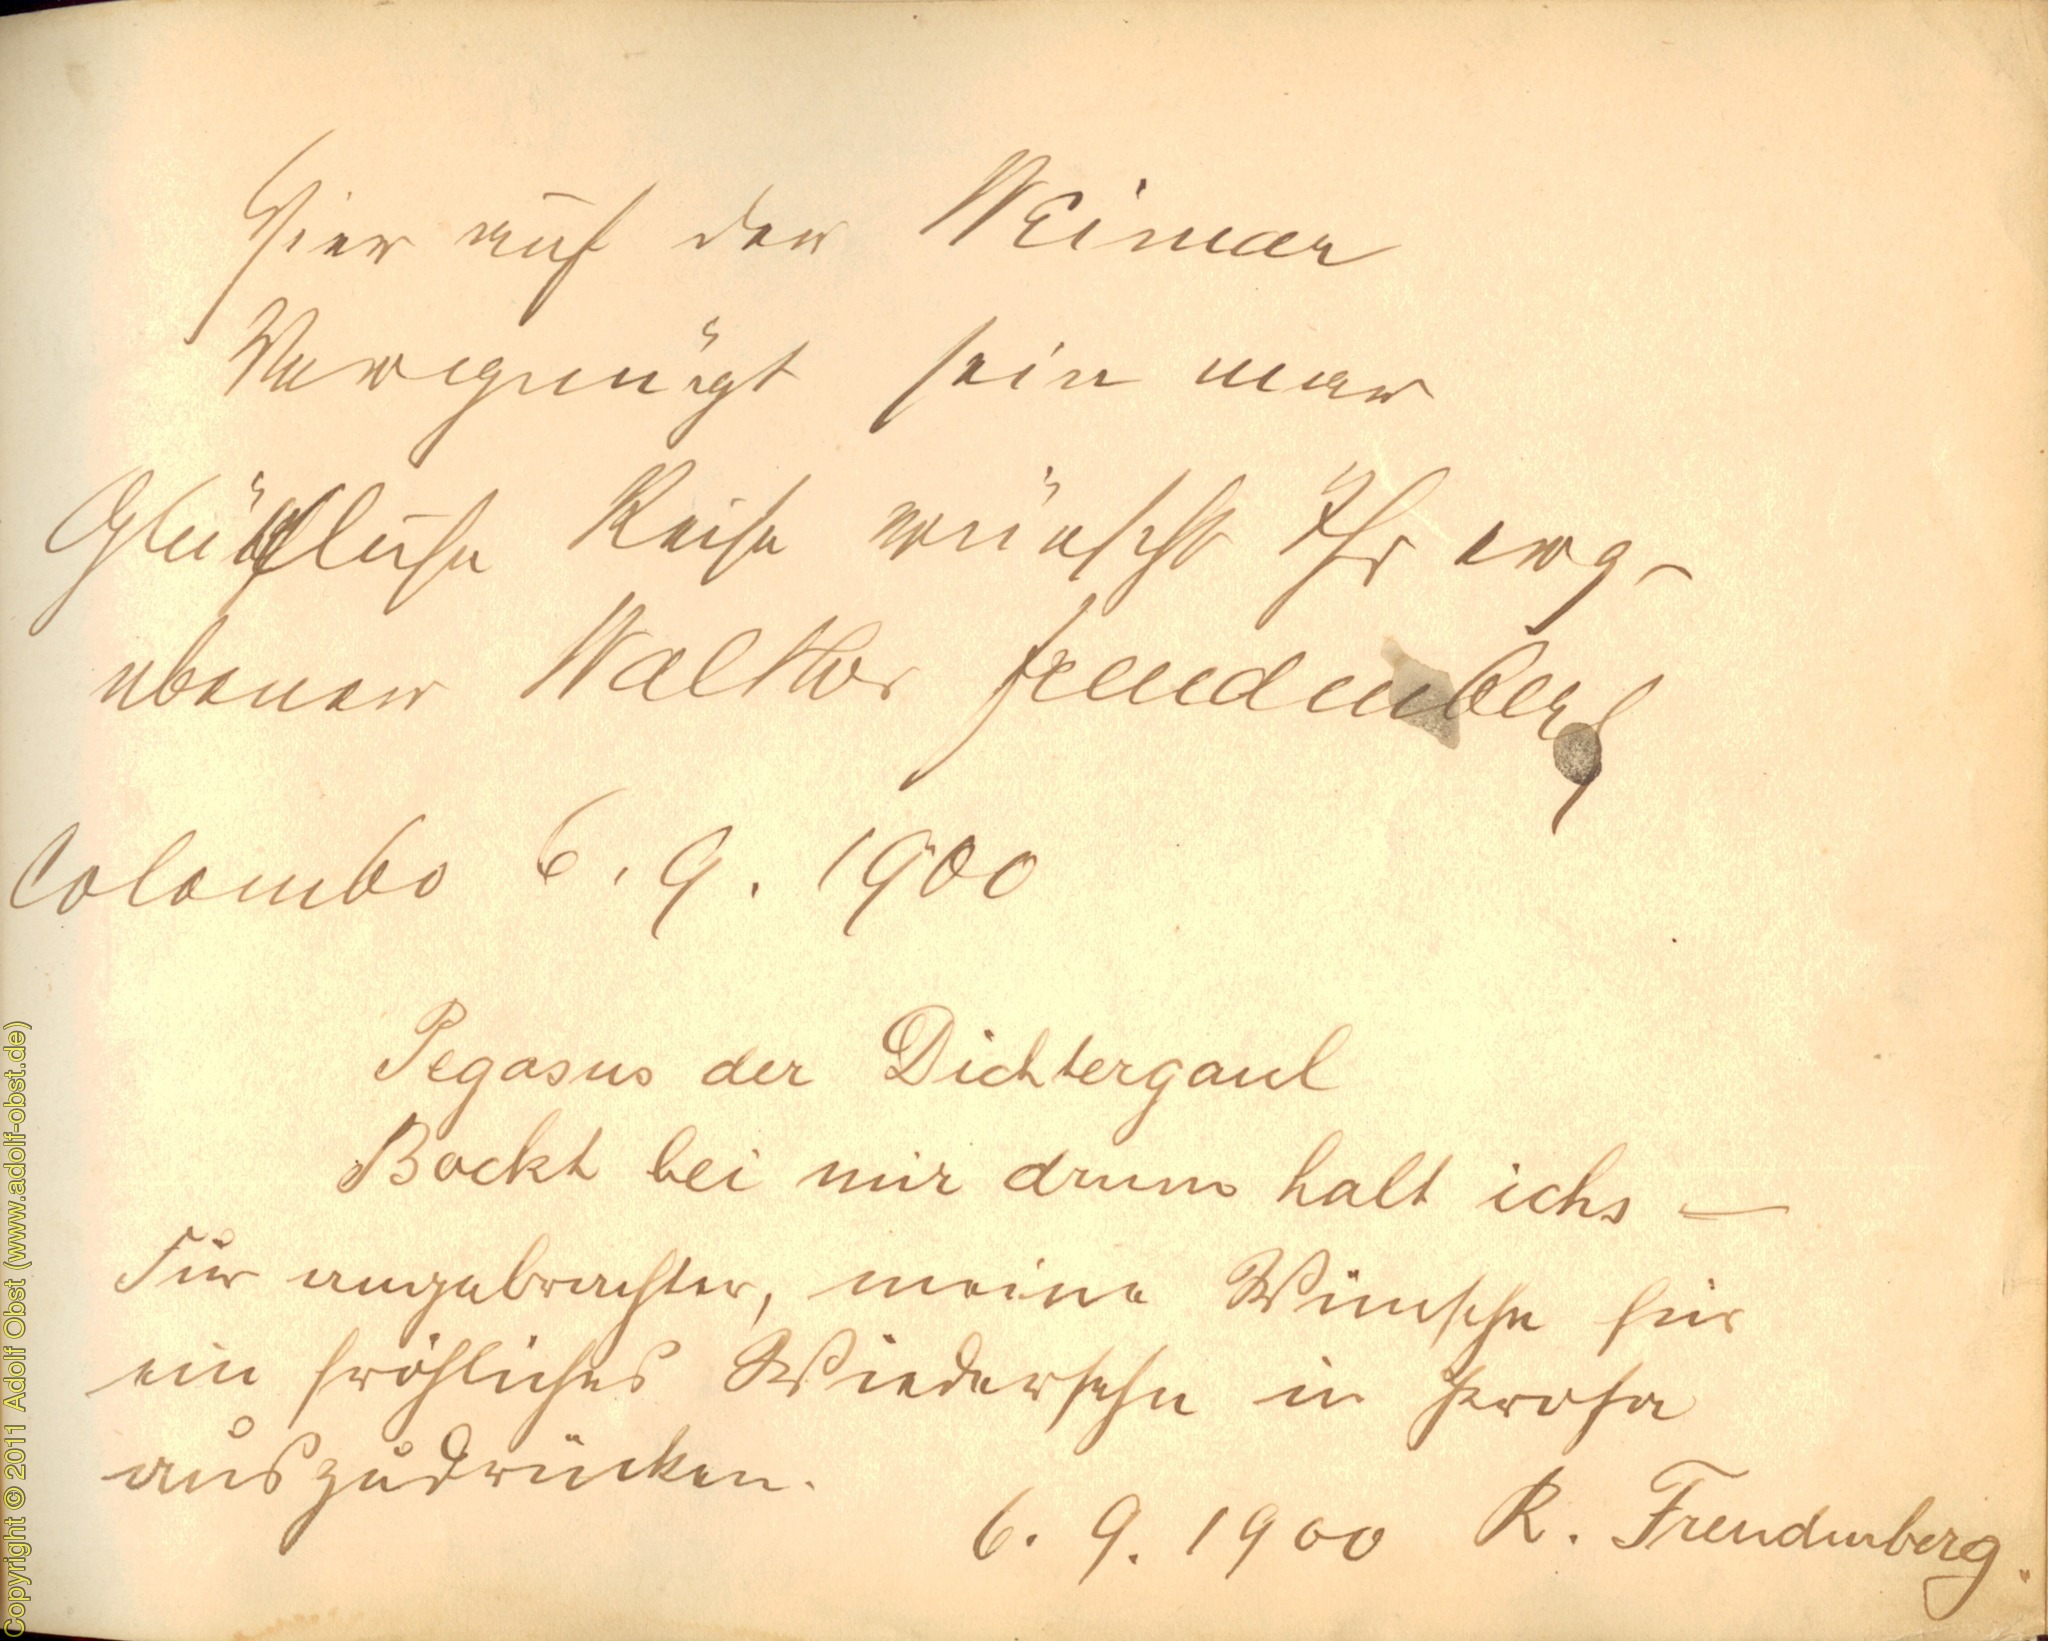 Hier auf der Weimar
Vergnügt sein war
Glückliche Reise wünscht Ihr erg-
ebener Walther Freudenberg
Colombo 6. 9. 1900
Pegasus der Dichtergaul
Bockt bei mir drum halt ichs —
Für angebrachter, meine Wünsche für
ein fröhliches Wiedersehn in Prosa
auszudrücken.
6. 9. 1900 R. Freudenberg.
Copyright © 2011 Adolf Obst (www.adolf-obst.de)